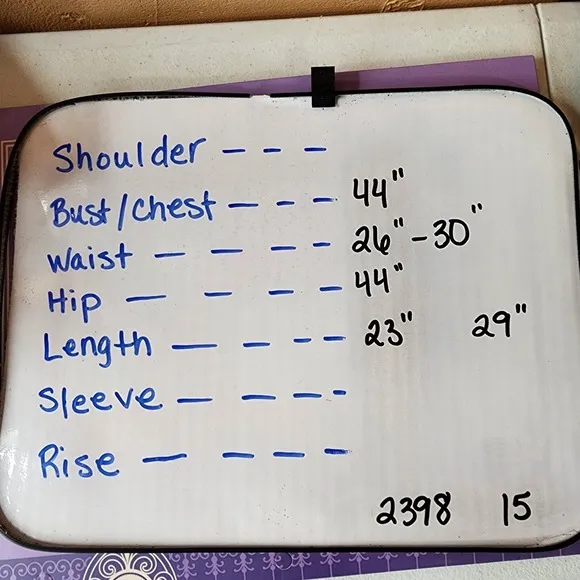 Shoulder - - -
Bust/Chest - - - 44"
Waist - - - - 26" - 30"
Hip - - - - 44"
Length - - - - 23" 29"
Sleeve - - - -
Rise - - - -
2398 15